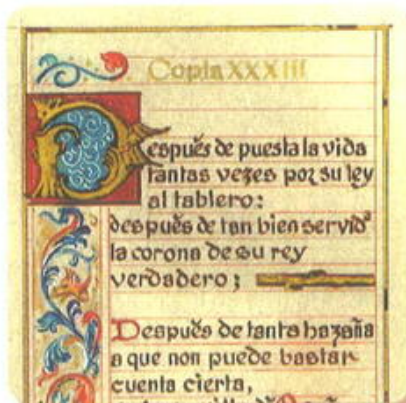 Copla XXXIII
Después de puesta la vida
tantas vezes por su ley
al tablero:
después de tan bien servidª
la corona de su rey
verdadero;
Después de tanta hazaña
a que non puede bastar
cuenta cierta,